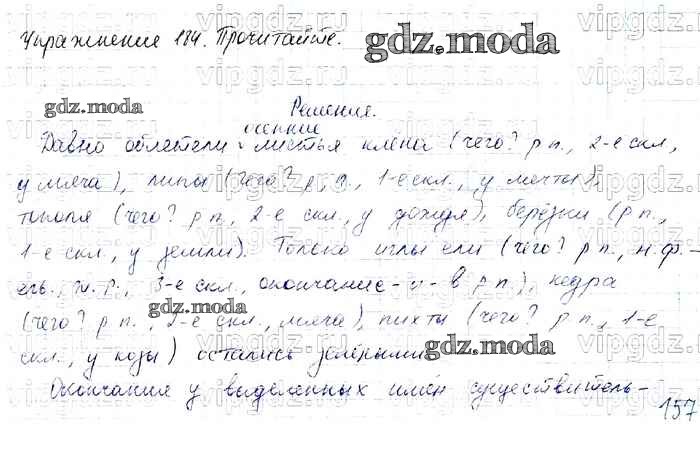 Упражнение 184. Прочитайте.
gdz.moda
gdz.moda
Решение.
осенние
Давно облетели листья клёна (чего? р п., 2-е скл.,
у мяча), липы (чего? р. п., 1-е скл., у мечты),
тополя (чего? р п., 2-е скл., у дождя), берёзки (р п.,
1-е скл., у земли). Только иглы ели (чего? р п., н. ф. -
ель, ж. р., 3-е скл., окончание -и- в р п.), кедра
gdz.moda
(чего? р п., 2-е скл., мяча), пихты (чего? р п., 1-е
скл., у козы) остались зелёными.
gdz.moda
Окончания у выделенных имён существитель-
157